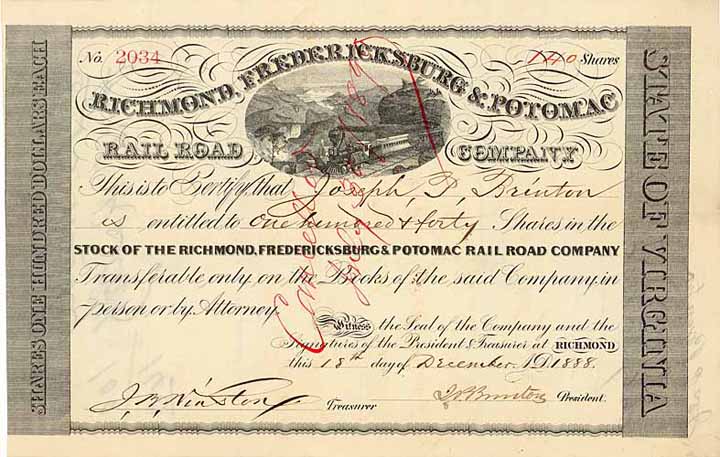 No. 2034
140 Shares
RICHMOND, FREDERICKSBURG & POTOMAC
RAIL ROAD COMPANY
This is to Certify, that Joseph P. Brinton
is entitled to One hundred & forty Shares in the
STOCK OF THE RICHMOND, FREDERICKSBURG & POTOMAC RAIL ROAD COMPANY
Transferable only on the Books of the said Company in
person or by Attorney.
Witness the Seal of the Company and the
Signatures of the President & Treasurer at RICHMOND
this 18th day of December AD. 1888.
Treasurer
President.
SHARES ONE HUNDRED DOLLARS EACH
STATE OF VIRGINIA
Cancelled